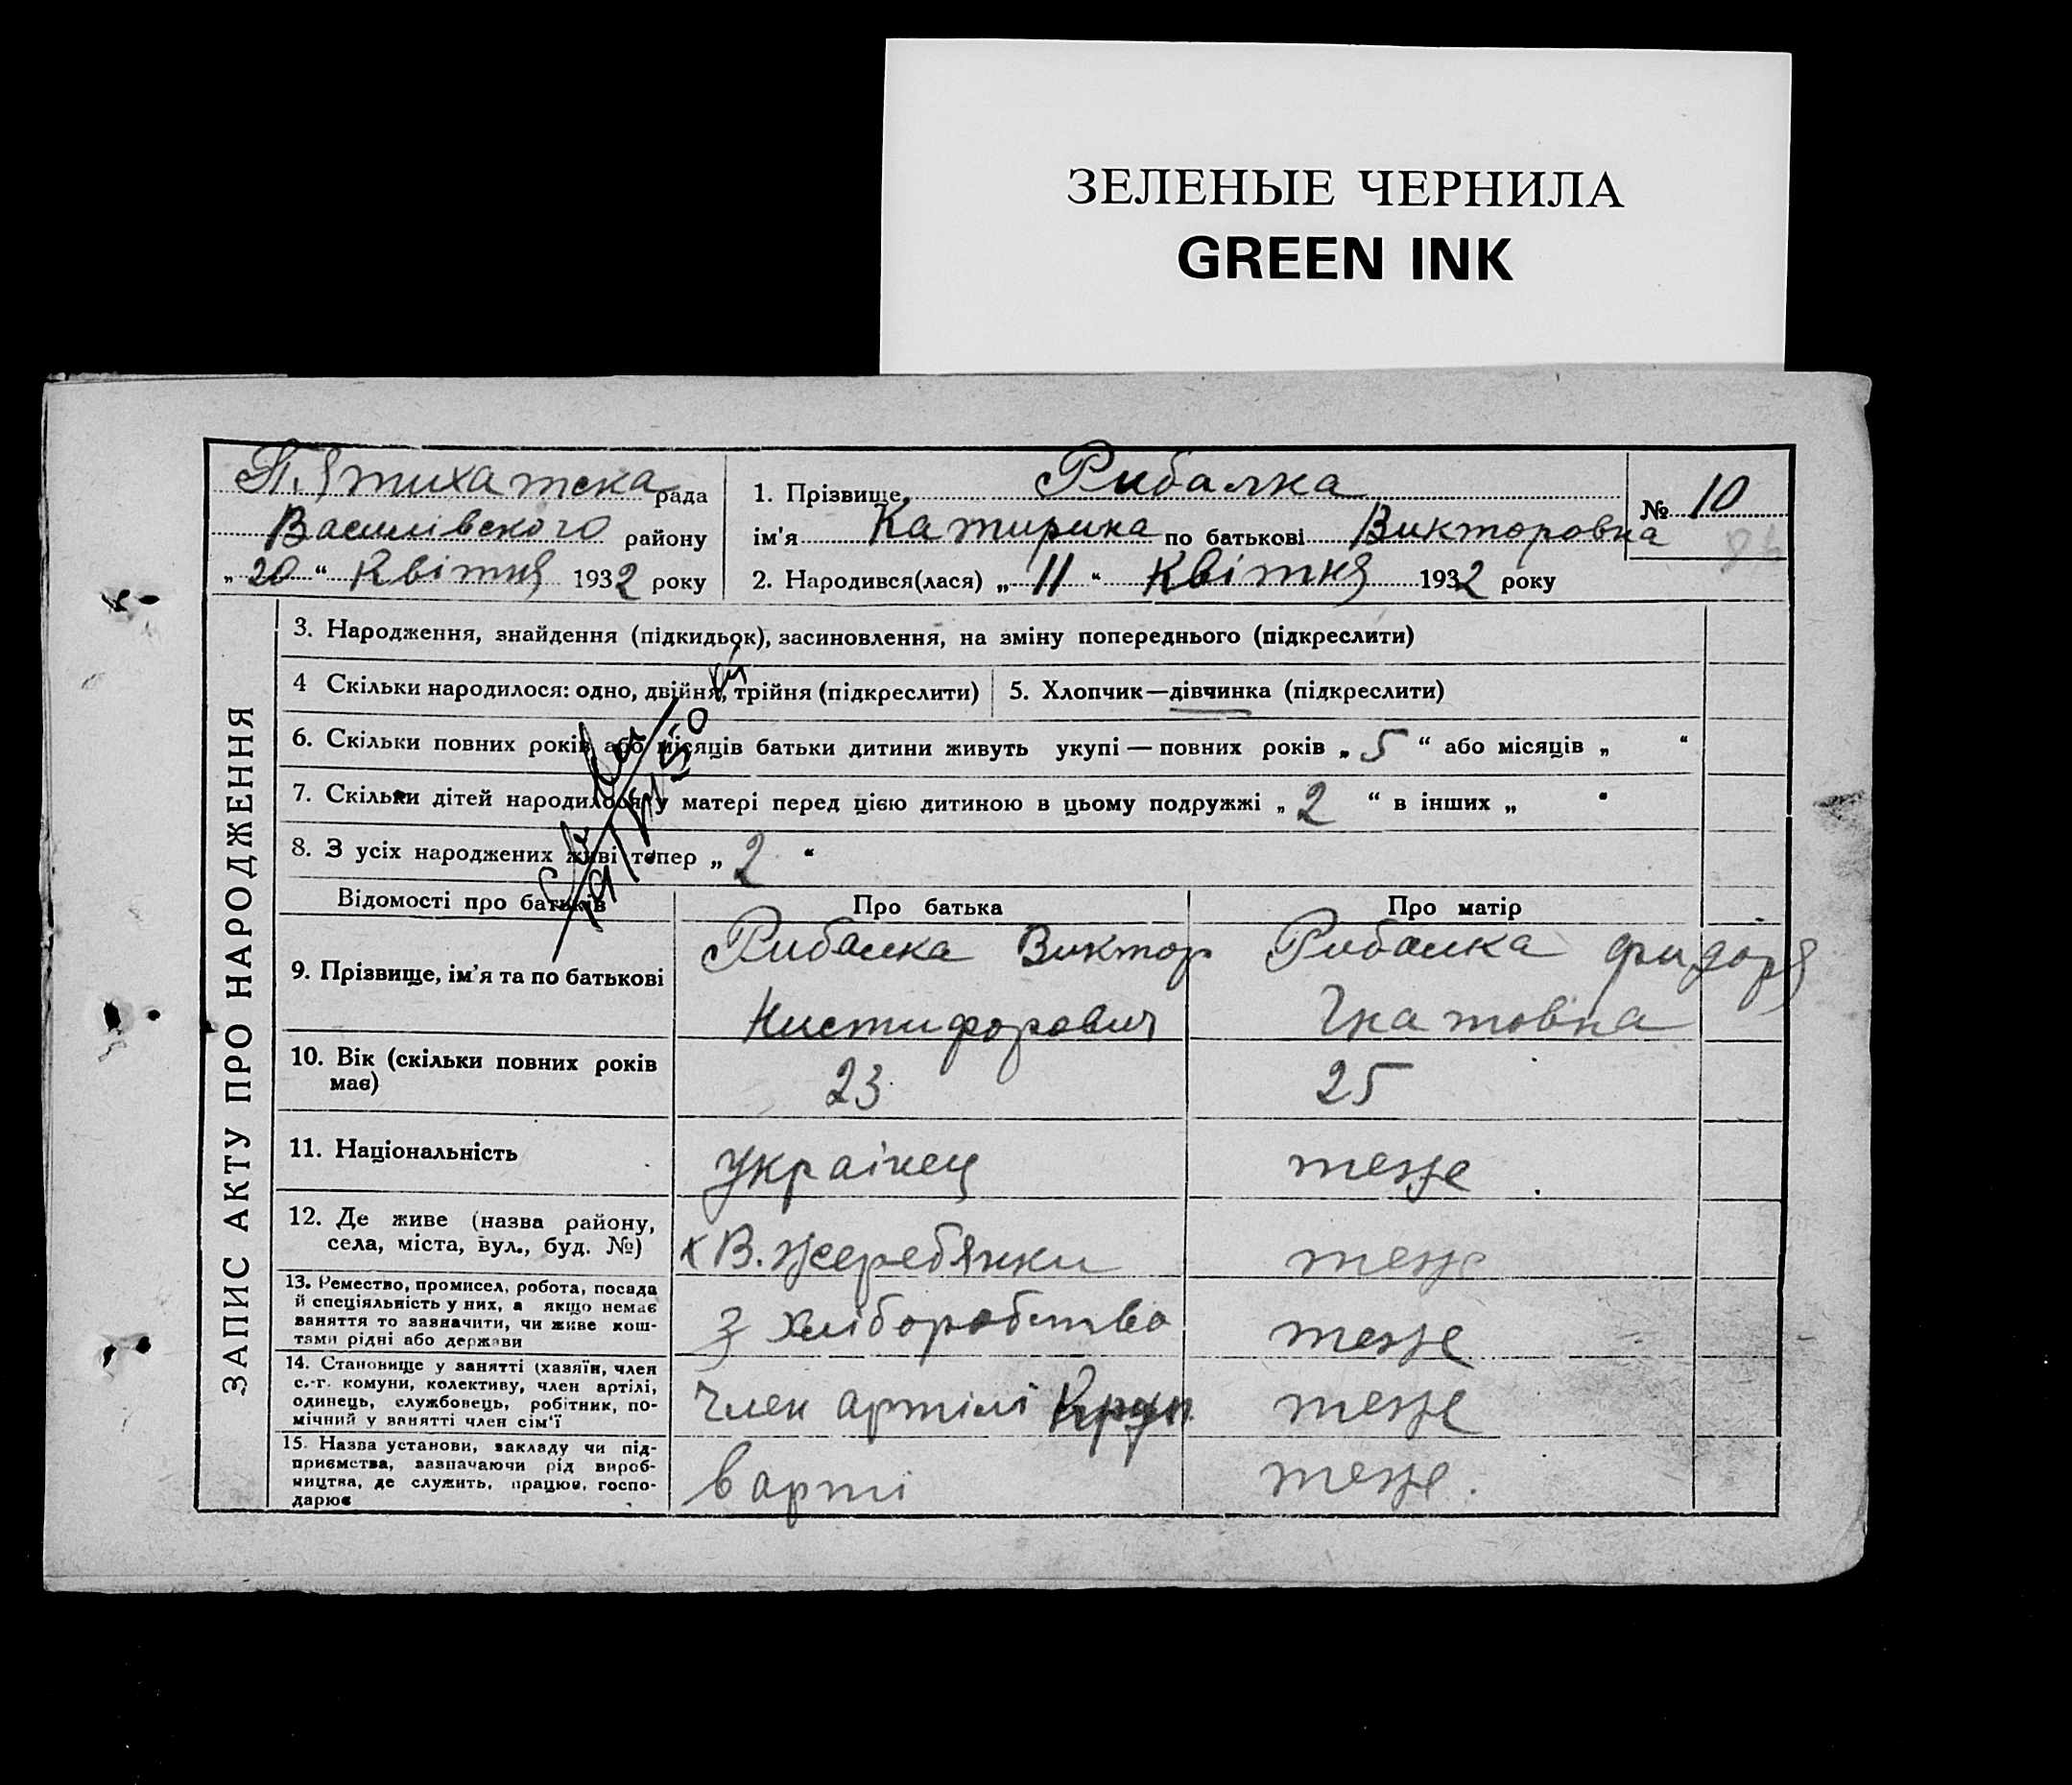 ЗЕЛЕНЫЕ ЧЕРНИЛА
GREEN INK
П.ятихатска рада
Василівского району
„ 20 “ Квітня 1932 року
1. Прізвище Рибалка
ім'я Катирина по батькові Викторовна
2. Народився(лася) „ 11 “ Квітня 1932 року
№ 10
ЗАПИС АКТУ ПРО НАРОДЖЕННЯ
3. Народження, знайдення (підкидьок), засиновлення, на зміну попереднього (підкреслити)
4 Скільки народилося: одно, двійня, трійня (підкреслити)
5. Хлопчик—дівчинка (підкреслити)
6. Скільки повних років або місяців батьки дитини живуть укупі — повних років „ 5 “ або місяців „ “
7. Скільки дітей народилося у матері перед цією дитиною в цьому подружжі „ 2 “ в інших „ “
8. З усіх народжених живі тепер „ 2 “
Відомості про батьків
Про батька
Про матір
9. Прізвище, ім'я та по батькові
Рибалка Виктор
Нистифорович
Рибалка Фидоря
Гнатовна
10. Вік (скільки повних років
має)
23
25
11. Національність
Украінец
теже
12. Де живе (назва району,
села, міста, вул., буд. №)
х В. Жеребянки
теже
13. Ремество, промисел, робота, посада
й спеціяльність у них, а якщо немає
заняття то зазначити, чи живе кош-
тами рідні або держави
З хліборобства
теже
14. Становище у занятті (хазяїн, член
с.-г. комуни, колективу, член артілі,
одинець, службовець, робітник, по-
мічний у занятті член сім'ї
член артілі
теже
15. Назва установи, закладу чи під-
приємства, зазначаючи рід вироб-
ництва, де служить, працює, госпо-
дарює
в арті
теже.